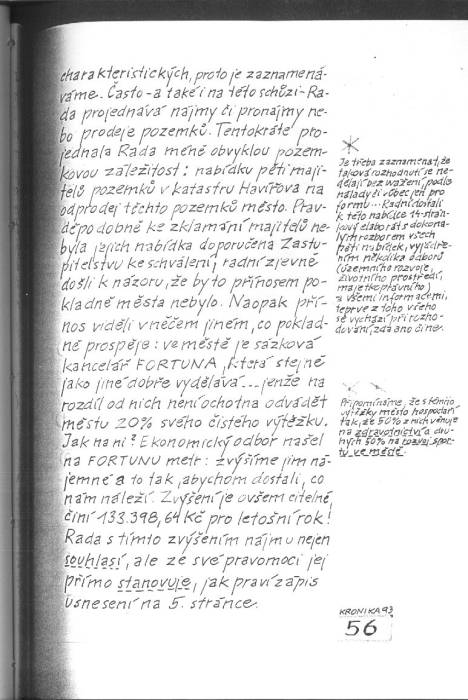 charakteristických, proto je zaznamená-
váme. Často - a také i na této schůzi - Ra-
da projednává nájmy či pronájmy ne-
bo prodeje pozemků. Tentokráte pro-
jednala Rada méně obvyklou pozem-
kovou záležitost: nabídku pěti maji-
telů pozemků v katastru Havířova na
odprodej těchto pozemků město. Prav-
děpodobně ke zklamání majitelů ne-
byla jejich nabídka doporučena Zastu-
pitelstvu ke schválení, radní zjevně
došli k názoru, že by to přínosem po-
kladně města nebylo. Naopak pří-
nos viděli v něčem jiném, co poklad-
ně prospěje: ve městě je sázková
kancelář FORTUNA, která stejně
jako jiné dobře vydělává... jenže na
rozdíl od nich není ochotna odvádět
městu 20% svého čistého výtěžku.
Jak na ni? Ekonomický odbor našel
na FORTUNU metr: zvýšíme jim ná-
jemné a to tak, abychom dostali, co
nám náleží. Zvýšení je ovšem citelné,
činí 133.398,64 Kč pro letošní rok!
Rada s tímto zvýšením nájmu nejen
souhlasí, ale ze své pravomoci jej
přímo stanovuje, jak praví zápis
usnesení na 5. stránce.
Je třeba zaznamenat, že
taková rozhodnutí se ne-
dělají bez vážení, podle
nálady či vůbec jen pro
formu... Radní dostali
k této nabídce 14-strán-
kový elaborát s dokona-
lým rozborem všech
pěti nabídek, vyjádře-
ním několika odborů
(územního rozvoje,
životního prostředí,
majetkoprávního)
a všemi informacemi,
teprve z toho všeho
se vychází při rozho-
dování, zda ano či ne.
Připomínáme, že s těmito
výtěžky město hospodaří
tak, že 50% z nich věnuje
na zdravotnictví a dru-
hých 50% na rozvoj spor-
tu ve městě
KRONIKA 93
56